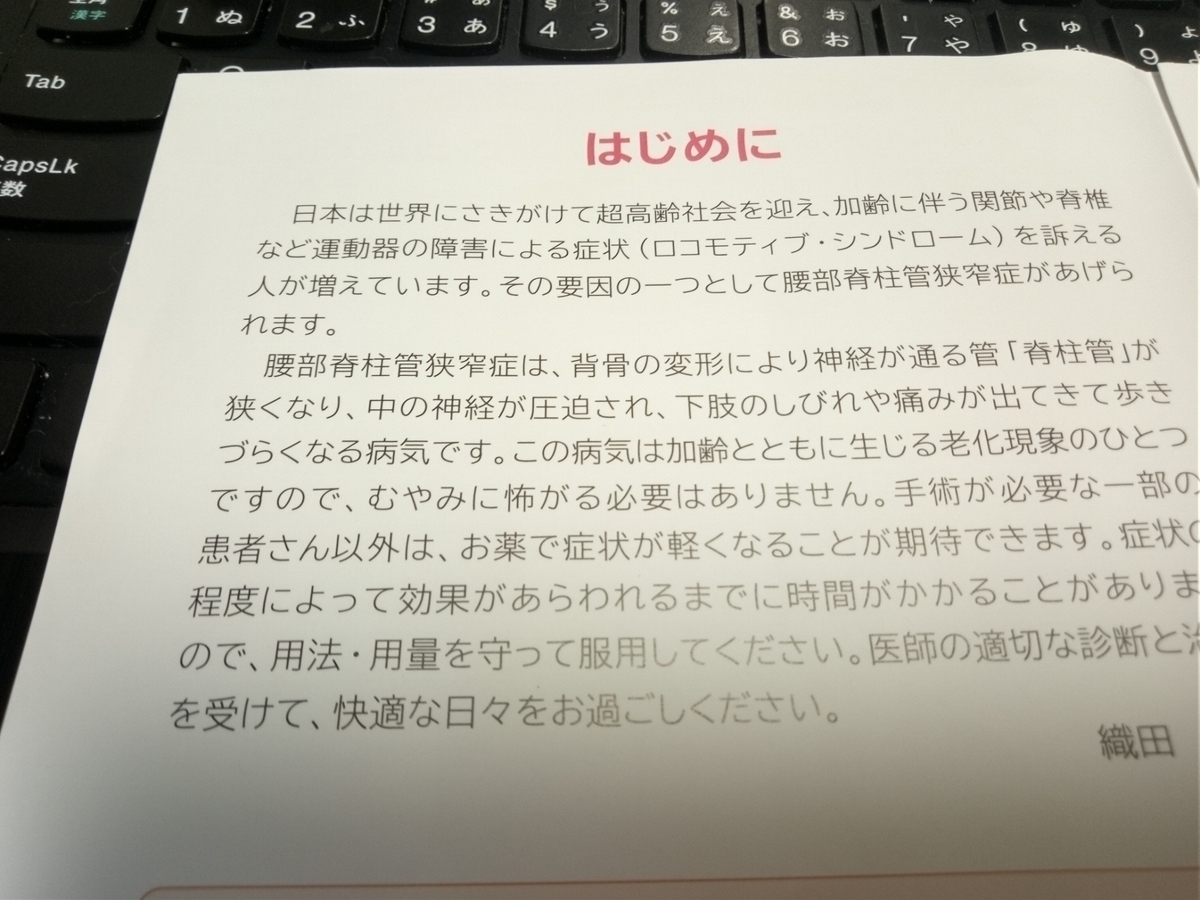 漢字
1 ぬ
2 ふ
3 あ
$ ぅ
4 う
% ぇ
5 え
& ぉ
6 お
' ゃ
7 や
( ゅ
8 ゆ
) ょ
9
Tab
CapsLk
数
はじめに
日本は世界にさきがけて超高齢社会を迎え、加齢に伴う関節や脊椎
など運動器の障害による症状（ロコモティブ・シンドローム）を訴える
人が増えています。その要因の一つとして腰部脊柱管狭窄症があげら
れます。
腰部脊柱管狭窄症は、背骨の変形により神経が通る管「脊柱管」が
狭くなり、中の神経が圧迫され、下肢のしびれや痛みが出てきて歩き
づらくなる病気です。この病気は加齢とともに生じる老化現象のひとつ
ですので、むやみに怖がる必要はありません。手術が必要な一部の
患者さん以外は、お薬で症状が軽くなることが期待できます。症状の
程度によって効果があらわれるまでに時間がかかることがありま
ので、用法・用量を守って服用してください。医師の適切な診断と
を受けて、快適な日々をお過ごしください。
織田